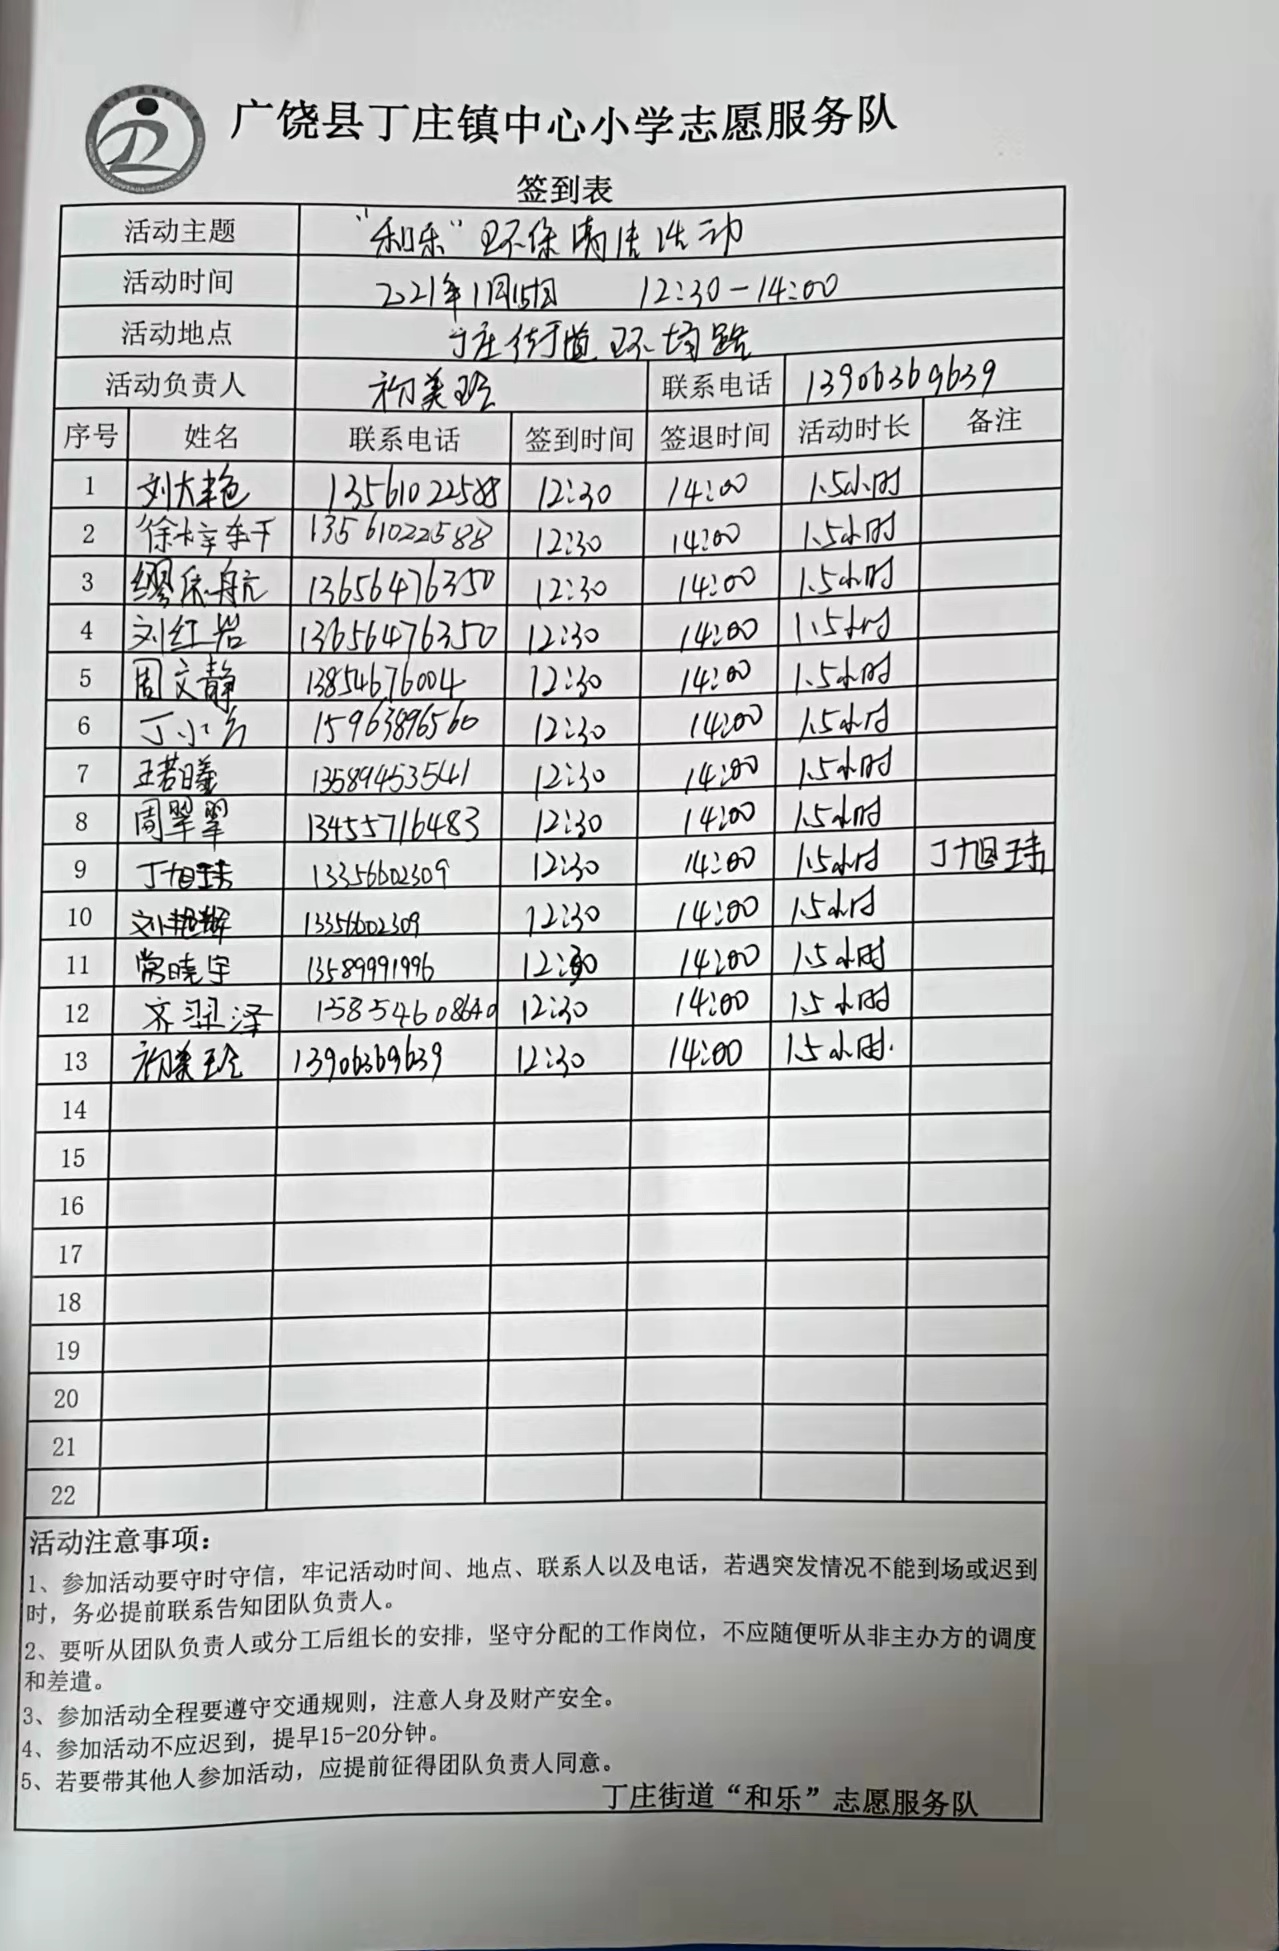 广饶县丁庄镇中心小学志愿服务队
签到表
活动主题 “和乐”环保清洁活动
活动时间 2021年1月15日 12:30-14:00
活动地点 丁庄街道
活动负责人 初美玲 联系电话 13906369639
序号 姓名 联系电话 签到时间 签退时间 活动时长 备注
1 刘大艳 13561022588 12:30 14:00 1.5小时
2 13561022588 12:30 14:00 1.5小时
3 13656476350 12:30 14:00 1.5小时
4 刘红岩 13656476350 12:30 14:00 1.5小时
5 周文静 13854676004 12:30 14:00 1.5小时
6 15963896560 12:30 14:00 1.5小时
7 王若曦 13589453541 12:30 14:00 1.5小时
8 周翠翠 13455716483 12:30 14:00 1.5小时
9 丁旭玮 13356602309 12:30 14:00 1.5小时 丁旭玮
10 刘艳辉 13356602309 12:30 14:00 1.5小时
11 常晓宇 13589991996 12:30 14:00 1.5小时
12 齐 泽 15854608640 12:30 14:00 1.5小时
13 初美玲 13906369639 12:30 14:00 1.5小时.
14
15
16
17
18
19
20
21
22
活动注意事项：
1、参加活动要守时守信，牢记活动时间、地点、联系人以及电话，若遇突发情况不能到场或迟到
时，务必提前联系告知团队负责人。
2、要听从团队负责人或分工后组长的安排，坚守分配的工作岗位，不应随便听从非主办方的调度
和差遣。
3、参加活动全程要遵守交通规则，注意人身及财产安全。
4、参加活动不应迟到，提早15-20分钟。
5、若要带其他人参加活动，应提前征得团队负责人同意。
丁庄街道“和乐”志愿服务队